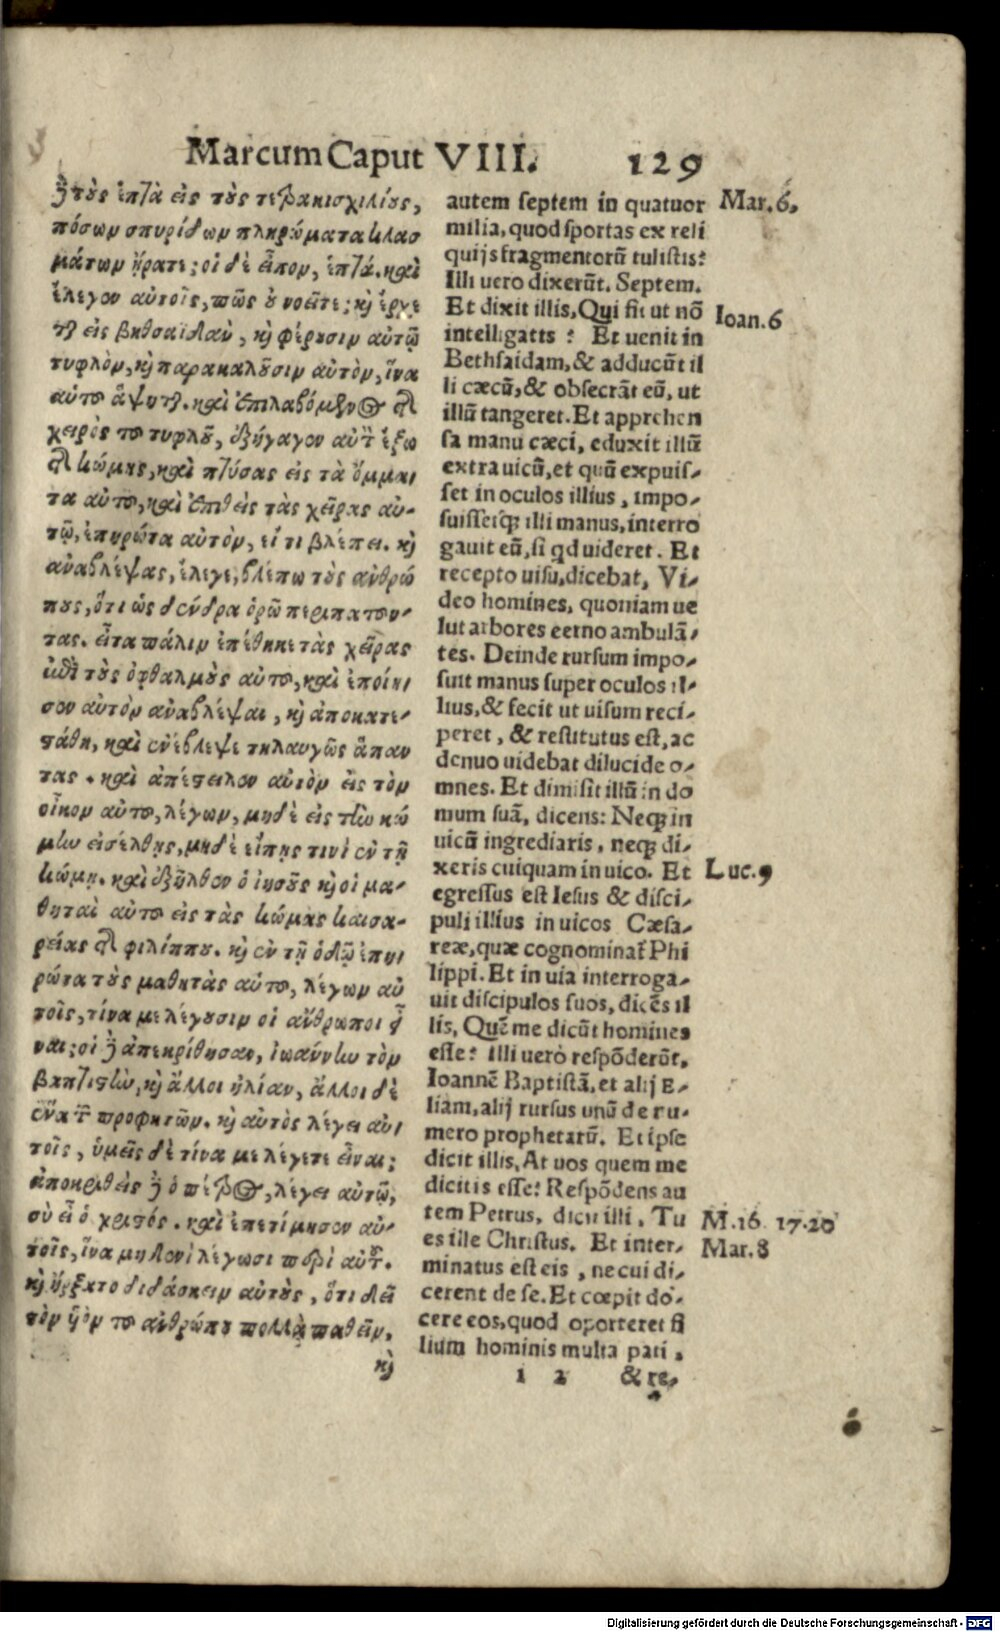 Marcum Caput VIII. 129
δὲ τοὺς ἑπτὰ εἰς τοὺς τετρακισχιλίους,
πόσων σπυρίδων πληρώματα κλασ
μάτων ἤρατε; οἱ δὲ εἶπον, ἑπτά. καὶ
ἔλεγον αὐτοῖς, πῶς οὐ νοεῖτε; κὶ ἔρχε
ται εἰς βηθσαϊδὰν, κὶ φέρουσιν αὐτῷ
τυφλὸν, κὶ παρακαλοῦσιν αὐτὸν, ἵνα
αὐτοῦ ἅψηται. καὶ ἐπιλαβόμενος τῆς
χειρὸς τοῦ τυφλοῦ, ἐξήγαγον αὐτὸν ἔξω
τῆς κώμης, καὶ πτύσας εἰς τὰ ὄμμα
τα αὐτοῦ, καὶ ἐπιθεὶς τὰς χεῖρας αὐ-
τῷ, ἐπηρώτα αὐτὸν, εἴ τι βλέπει. κὶ
ἀναβλέψας, ἔλεγε, βλέπω τοὺς ἀνθρώ
πους, ὅτι ὡς δένδρα ὁρῶ περιπατοῦν-
τας. εἶτα πάλιν ἐπέθηκε τὰς χεῖρας
ἐπὶ τοὺς ὀφθαλμοὺς αὐτοῦ, καὶ ἐποίη
σον αὐτὸν ἀναβλέψαι, κὶ ἀποκατε-
στάθη, καὶ ἐνέβλεψε τηλαυγῶς ἅπαν
τας. καὶ ἀπέστειλον αὐτὸν εἰς τὸν
οἶκον αὐτοῦ, λέγων, μηδὲ εἰς τὴν κώ
μην εἰσέλθῃς, μηδὲ εἴπῃς τινὶ ἐν τῇ
κώμῃ. καὶ ἐξῆλθον ὁ ἰησοῦς κὶ οἱ μα-
θηταὶ αὐτοῦ εἰς τὰς κώμας καισα-
ρείας τῆς φιλίππου. κὶ ἐν τῇ ὁδῷ ἐπη
ρώτα τοὺς μαθητὰς αὐτοῦ, λέγων αὐ
τοῖς, τίνα με λέγουσιν οἱ ἄνθρωποι εἶ
ναι; οἱ δὲ ἀπεκρίθησαν, ἰωάννην τὸν
βαπτιστὴν, κὶ ἄλλοι ἠλίαν, ἄλλοι δὲ
ἕνα τῶν προφητῶν. κὶ αὐτὸς λέγει αὐ
τοῖς, ὑμεῖς δὲ τίνα με λέγετε εἶναι;
ἀποκριθεὶς δὲ ὁ πέτρος, λέγει αὐτῷ,
σὺ εἶ ὁ χριστός. καὶ ἐπετίμησον αὐ-
τοῖς, ἵνα μηδενὶ λέγωσι περὶ αὐτοῦ.
κὶ ἤρξατο διδάσκειν αὐτοὺς, ὅτι δεῖ
τὸν υἱὸν τοῦ ἀνθρώπου πολλὰ παθεῖν,
κὶ
autem septem in quatuor
milia, quod sportas ex reli
quijs fragmentorū tulistis?
Illi uero dixerūt. Septem.
Et dixit illis, Qui fit ut nō
intelligatis? Et uenit in
Bethsaidam, & adducūt il
li cæcū, & obsecrāt eū, ut
illū tangeret. Et apprehen
sa manu cæci, eduxit illū
extra uicū, et quū expuis-
set in oculos illius, impo-
suissetq; illi manus, interro
gauit eū, si qd uideret. Et
recepto uisu, dicebat, Vi-
deo homines, quoniam ue
lut arbores cerno ambulā-
tes. Deinde rursum impo-
suit manus super oculos il-
lius, & fecit ut uisum reci-
peret, & restitutus est, ac
denuo uidebat dilucide o-
mnes. Et dimisit illū in do
mum suā, dicens: Neq; in
uicū ingrediaris, neq; di-
xeris cuiquam in uico. Et
egressus est Iesus & disci-
puli illius in uicos Cæsa-
reæ, quæ cognominat̃ Phi
lippi. Et in uia interroga-
uit discipulos suos, dicēs il
lis, Quē me dicūt homines
esse? Illi uerò respōderūt,
Ioannē Baptistā, et alij E-
liam, alij rursus unū de nu-
mero prophetarū. Et ipse
dicit illis, At uos quem me
dicitis esse? Respōdens au
tem Petrus, dicit illi, Tu
es ille Christus. Et inter-
minatus est eis, ne cui di-
cerent de se. Et cœpit do-
cere eos, quod oporteret fi
lium hominis multa pati,
1 2 & re-
Mar. 6,
Ioan. 6
Luc. 9
M. 16 17.20
Mar. 8
Digitalisierung gefördert durch die Deutsche Forschungsgemeinschaft - DFG